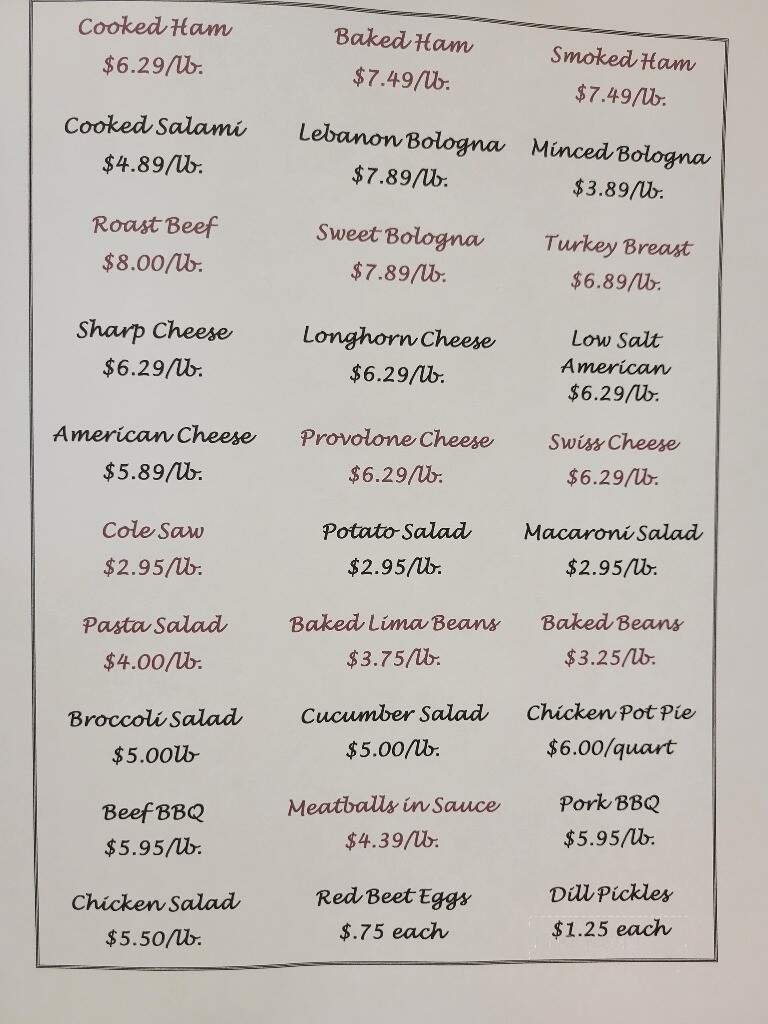 Cooked Ham
$6.29/lb.
Baked Ham
$7.49/lb.
Smoked Ham
$7.49/lb.
Cooked Salami
$4.89/lb.
Lebanon Bologna
$7.89/lb.
Minced Bologna
$3.89/lb.
Roast Beef
$8.00/lb.
Sweet Bologna
$7.89/lb.
Turkey Breast
$6.89/lb.
Sharp Cheese
$6.29/lb.
Longhorn Cheese
$6.29/lb.
Low Salt
American
$6.29/lb.
American Cheese
$5.89/lb.
Provolone Cheese
$6.29/lb.
Swiss Cheese
$6.29/lb.
Cole Saw
$2.95/lb.
Potato Salad
$2.95/lb.
Macaroni Salad
$2.95/lb.
Pasta Salad
$4.00/lb.
Baked Lima Beans
$3.75/lb.
Baked Beans
$3.25/lb.
Broccoli Salad
$5.00lb
Cucumber Salad
$5.00/lb.
Chicken Pot Pie
$6.00/quart
Beef BBQ
$5.95/lb.
Meatballs in Sauce
$4.39/lb.
Pork BBQ
$5.95/lb.
Chicken Salad
$5.50/lb.
Red Beet Eggs
$.75 each
Dill Pickles
$1.25 each